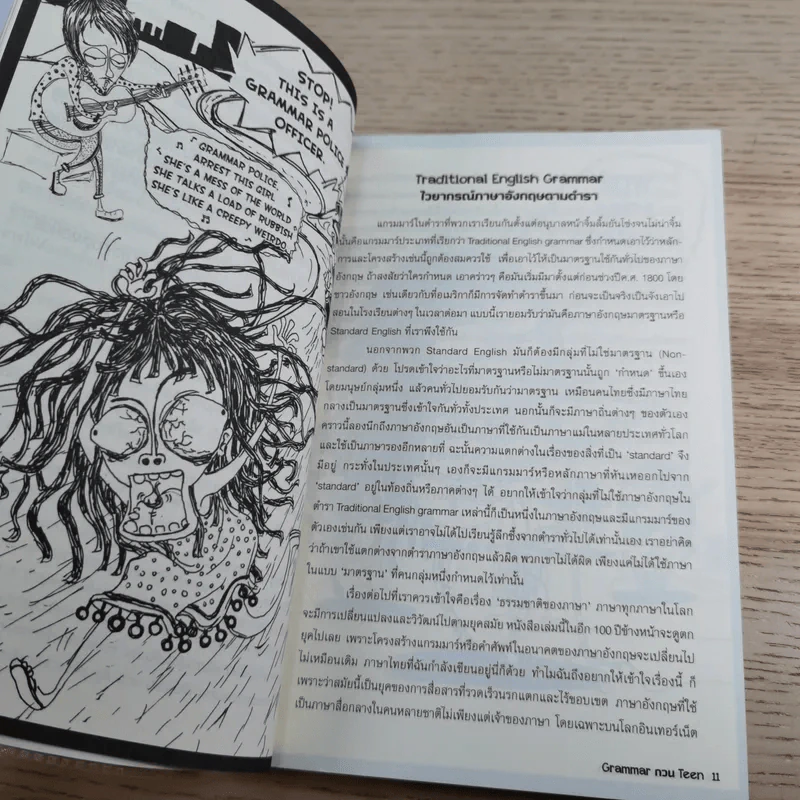 STOP!
THIS IS A
GRAMMAR POLICE
OFFICER.
GRAMMAR POLICE,
ARREST THIS GIRL
SHE'S A MESS OF THE WORLD
SHE TALKS A LOAD OF RUBBISH
SHE'S LIKE A CREEPY WEIRDO
Traditional English Grammar
ไวยากรณ์ภาษาอังกฤษตามตำรา
แกรมมาร์ในตำราที่พวกเราเรียนกันตั้งแต่อนุบาลหน้าจิ้มลิ้มยันโข่งจนไม่น่าจิ้ม
นั้นคือแกรมมาร์ประเภทที่เรียกว่า Traditional English grammar ซึ่งกำหนดเอาไว้ว่าหลัก-
การและโครงสร้างเช่นนี้ถูกต้องสมควรใช้ เพื่อเอาไว้ให้เป็นมาตรฐานใช้กันทั่วไปของภาษา
อังกฤษ ถ้าสงสัยว่าใครกำหนด เอาคร่าวๆ คือมันเริ่มมีมาตั้งแต่ก่อนช่วงปีค.ศ. 1800 โดย
ชาวอังกฤษ เช่นเดียวกับที่อเมริกาก็มีการจัดทำตำราขึ้นมา ก่อนจะเป็นจริงเป็นจังเอาไป
สอนในโรงเรียนต่างๆ ในเวลาต่อมา แบบนี้เรายอมรับว่ามันคือภาษาอังกฤษมาตรฐานหรือ
Standard English ที่เราพึงใช้กัน
นอกจากพวก Standard English มันก็ต้องมีกลุ่มที่ไม่ใช่มาตรฐาน (Non-
standard) ด้วย โปรดเข้าใจว่าอะไรที่มาตรฐานหรือไม่มาตรฐานนั้นถูก 'กำหนด' ขึ้นเอง
โดยมนุษย์กลุ่มหนึ่ง แล้วคนทั่วไปยอมรับกันว่ามาตรฐาน เหมือนคนไทยซึ่งมีภาษาไทย
กลางเป็นมาตรฐานซึ่งเข้าใจกันทั่วทั้งประเทศ นอกนั้นก็จะมีภาษาถิ่นต่างๆ ของตัวเอง
คราวนี้ลองนึกถึงภาษาอังกฤษอันเป็นภาษาที่ใช้กันเป็นภาษาแม่ในหลายประเทศทั่วโลก
และใช้เป็นภาษารองอีกหลายที่ ฉะนั้นความแตกต่างในเรื่องของสิ่งที่เป็น 'standard' จึง
มีอยู่ กระทั่งในประเทศนั้นๆ เองก็จะมีแกรมมาร์หรือหลักภาษาที่หันเหออกไปจาก
'standard' อยู่ในท้องถิ่นหรือภาคต่างๆ ได้ อยากให้เข้าใจว่ากลุ่มที่ไม่ใช้ภาษาอังกฤษใน
ตำรา Traditional English grammar เหล่านี้ก็เป็นหนึ่งในภาษาอังกฤษและมีแกรมมาร์ของ
ตัวเองเช่นกัน เพียงแต่เราอาจไม่ได้ไปเรียนรู้ลึกซึ้งจากตำราทั่วไปได้เท่านั้นเอง เราอย่าคิด
ว่าถ้าเขาใช้แตกต่างจากตำราภาษาอังกฤษแล้วผิด พวกเขาไม่ได้ผิด เพียงแค่ไม่ได้ใช้ภาษา
ในแบบ 'มาตรฐาน' ที่คนกลุ่มหนึ่งกำหนดไว้เท่านั้น
เรื่องต่อไปที่เราควรเข้าใจคือเรื่อง 'ธรรมชาติของภาษา' ภาษาทุกภาษาในโลก
จะมีการเปลี่ยนแปลงและวิวัฒน์ไปตามยุคสมัย หนังสือเล่มนี้ในอีก 100 ปีข้างหน้าจะดูตก
ยุคไปเลย เพราะโครงสร้างแกรมมาร์หรือคำศัพท์ในอนาคตของภาษาอังกฤษจะเปลี่ยนไป
ไม่เหมือนเดิม ภาษาไทยที่ฉันกำลังเขียนอยู่นี่ก็ด้วย ทำไมฉันถึงอยากให้เข้าใจเรื่องนี้ ก็
เพราะว่าสมัยนี้เป็นยุคของการสื่อสารที่รวดเร็วนรกแตกและไร้ขอบเขต ภาษาอังกฤษที่ใช้
เป็นภาษาสื่อกลางในคนหลายชาติไม่เพียงแต่เจ้าของภาษา โดยเฉพาะบนโลกอินเทอร์เน็ต
Grammar กวน Teen 11